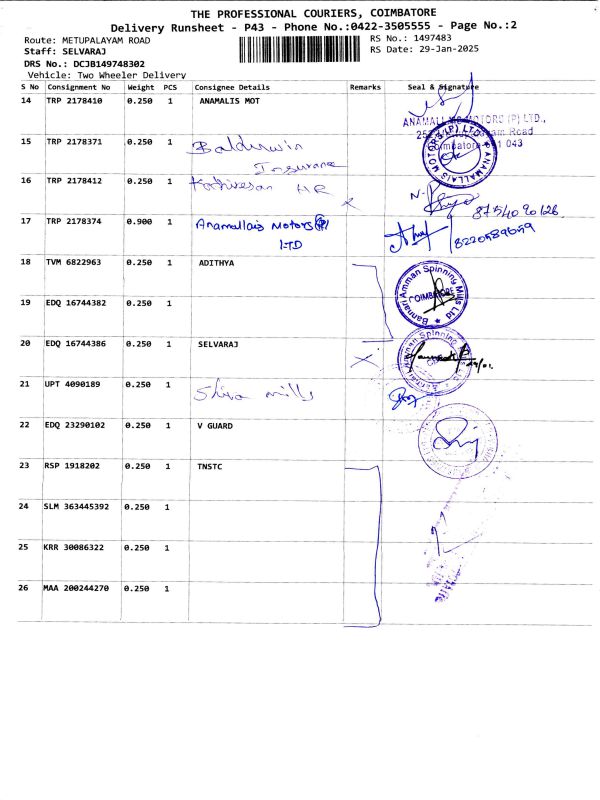 THE PROFESSIONAL COURIERS, COIMBATORE
Delivery Runsheet - P43 - Phone No.:0422-3505555 - Page No.:2
Route: METUPALAYAM ROAD
RS No.: 1497483
Staff: SELVARAJ
RS Date: 29-Jan-2025
DRS No.: DCJB149748302
Vehicle: Two Wheeler Delivery
S No Consignment No Weight PCS Consignee Details Remarks Seal & Signature
14 TRP 2178410 0.250 1 ANAMALIS MOT
ANAMALLAIS MOTORS (P) LTD.,
Coimbatore 641 043
15 TRP 2178371 0.250 1 Baldurwin
Insurance
ANAMALLAIS MOTORS (P) LTD
16 TRP 2178412 0.250 1 HR
8754090126
17 TRP 2178374 0.900 1 Anamallais Motors (P)
LTD
8220589059
18 TVM 6822963 0.250 1 ADITHYA
Bannari Amman Spinning Mills Ltd
COIMBATORE
19 EDQ 16744382 0.250 1
20 EDQ 16744386 0.250 1 SELVARAJ
21 UPT 4090189 0.250 1 Shiva mills
22 EDQ 23290102 0.250 1 V GUARD
23 RSP 1918202 0.250 1 TNSTC
24 SLM 363445392 0.250 1
25 KRR 30086322 0.250 1
26 MAA 200244270 0.250 1